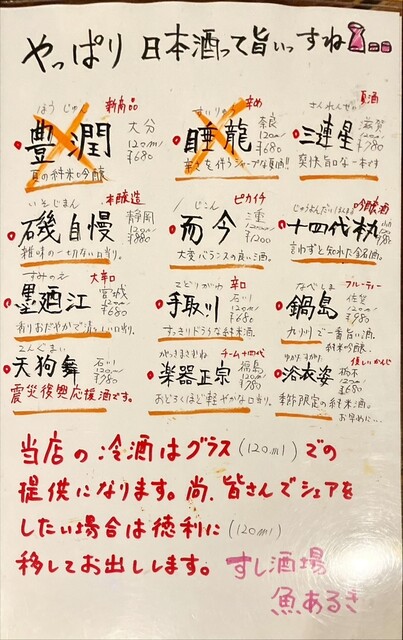 やっぱり 日本酒って旨いっすね
新商品
ほうじゅん
豊潤
大分
120ml
¥680
夏の純米吟醸
辛め
すいりゅう
睡龍
奈良
120ml
¥680
辛さを伴うシャープな夏酒!!
夏酒
さんれんせい
三連星
滋賀
120ml
¥780
爽快旨口な一本です
本醸造
いそじまん
磯自慢
静岡
120ml
¥880
雑味の一切ない口当り。
ピカイチ
じこん
而今
三重
120ml
¥1200
大変バランスの良い酒。
吟醸酒
じゅうよんだい
十四代
言わずと知れた銘酒。
大辛口
すみのえ
墨廼江
宮城
120ml
¥680
香りおだやかで清々しい口当り。
辛口
てどりがわ
手取川
石川
120ml
¥680
すっきりドライな純米酒。
フルーティー
なべしま
鍋島
佐賀
120ml
¥980
九州で一番旨い酒。
純米吟醸。
てんぐまい
天狗舞
石川
120ml
¥780
震災復興応援酒です。
チーム十四代
がっきまさむね
楽器正宗
福島
120ml
¥680
おどろくほど軽やかな口当り。
優しいかんじ
ゆかたすがた
浴衣姿
栃木
120ml
¥680
季節限定の純米酒。
お早めに…
当店の冷酒はグラス(120ml)での
提供になります。尚、皆さんでシェアを
したい場合は徳利に(120ml)
移してお出しします。
すし酒場
魚あるき